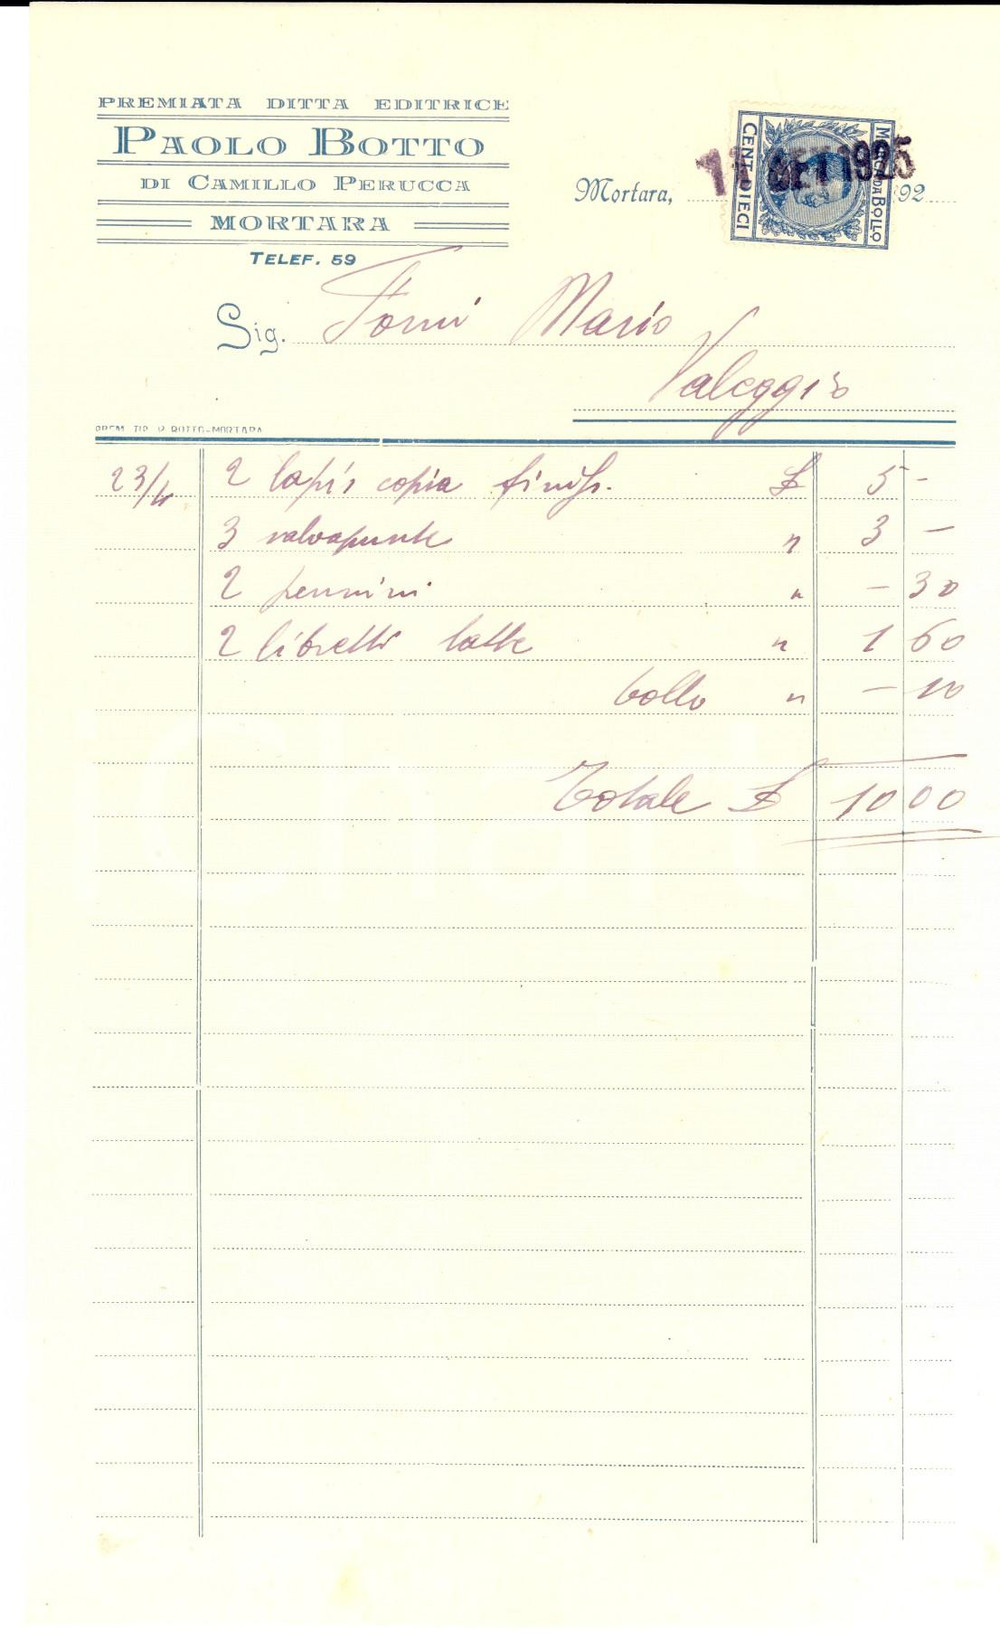 PREMIATA DITTA EDITRICE
PAOLO BOTTO
DI CAMILLO PERUCCA
MORTARA
TELEF. 59
Mortara, 11 SET 1925 192
CENT. DIECI
MARCA DA BOLLO
Sig. Tomi Mario
Valeggio
PREM. TIP. P. BOTTO-MORTARA
23/4 2 lapis copia finiss. £ 5 -
3 salvapunte " 3 -
2 pennini " - 30
2 libretti latte " 1 60
bollo " - 10
Totale £ 10 00